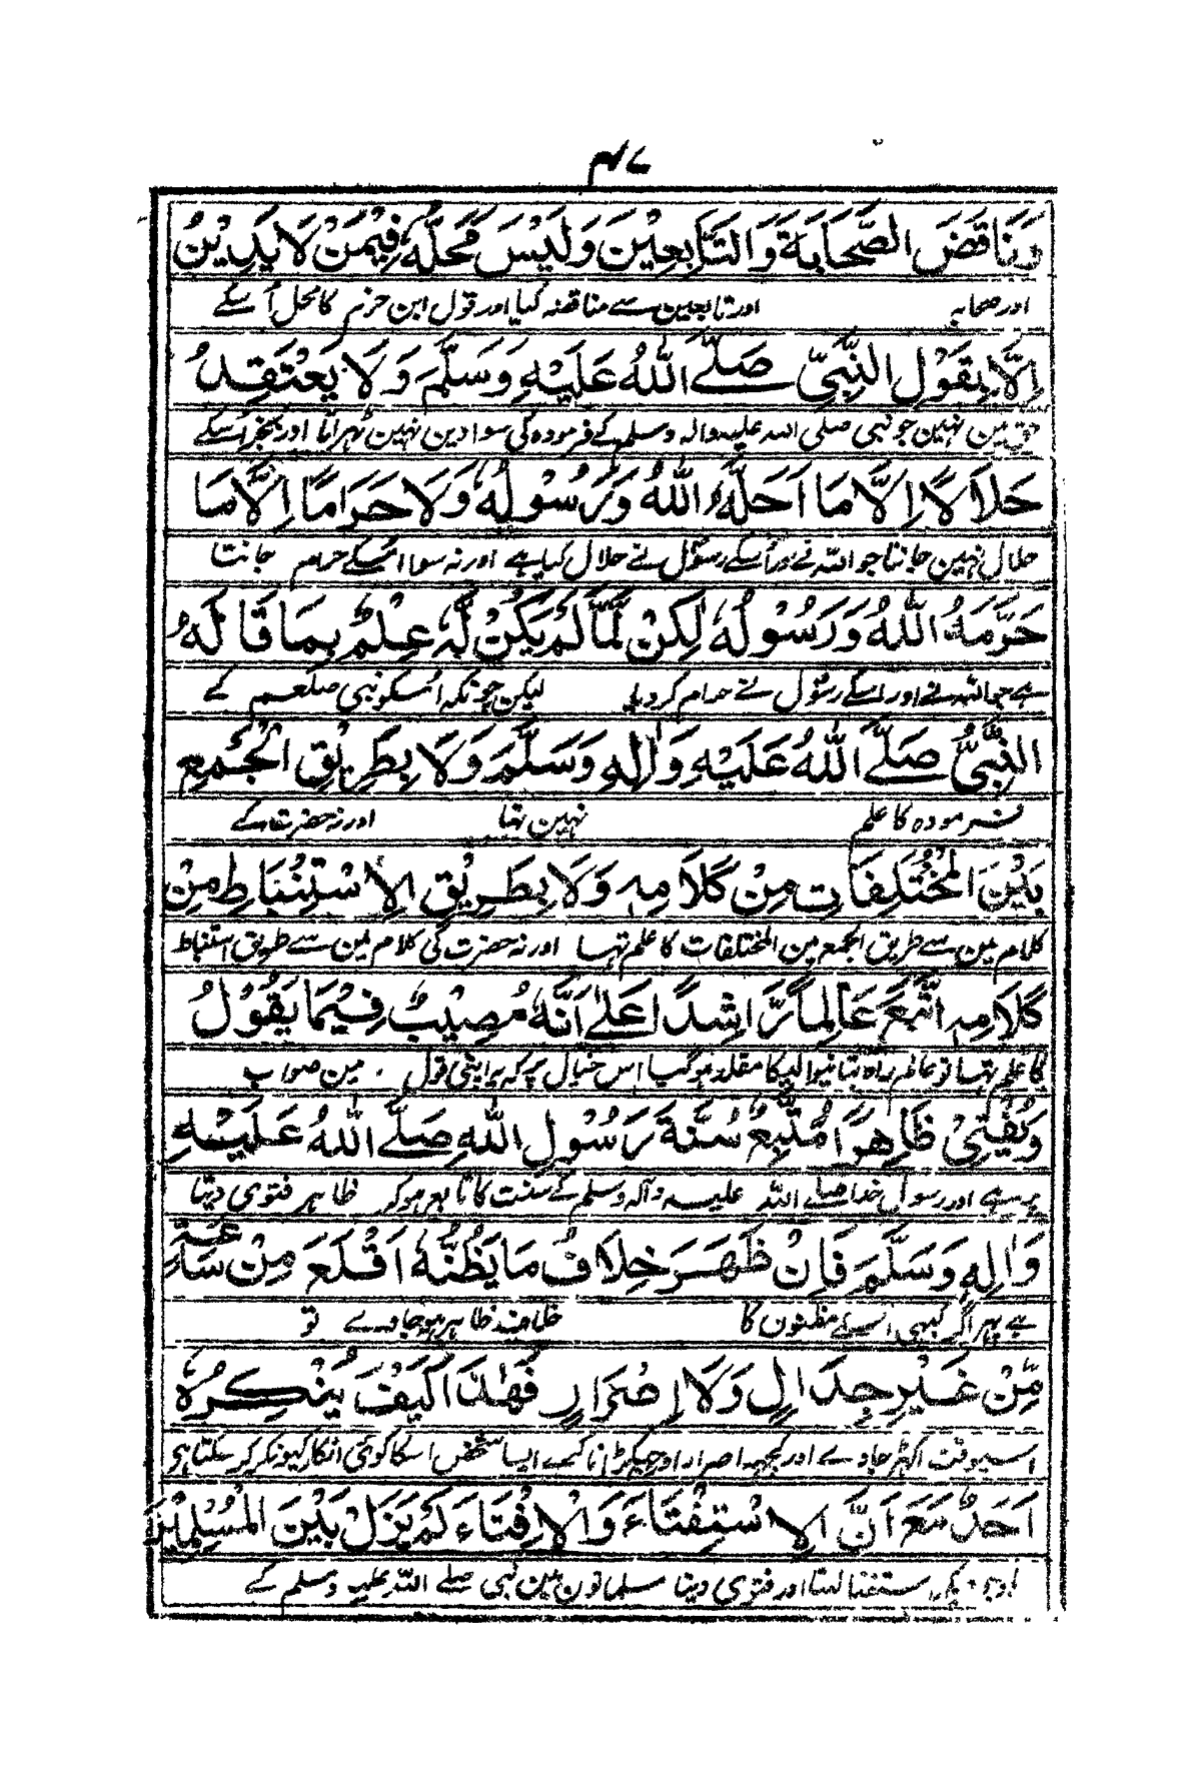 ۴۷
وَنَاقَضَ الصَّحَابَةَ وَالتَّابِعِيْنَ وَلَيْسَ مَحَلُّهٗ فِيْمَنْ لَا يَدِيْنُ
اور صحابہ اور تابعین سے مناقضہ کیا اور قول ابن حزم کا محل اُسکے
اِلَّا بِقَوْلِ النَّبِيِّ صَلَّے اللّٰهُ عَلَيْهِ وَسَلَّمَ وَلَا يَعْتَقِدُ
حق مین نہین جو نبی صلی اللہ علیہ والہ وسلم کے فرمودہ کی سوا دین نہین ٹہراتا اور بجز اُسکے
حَلَالًا اِلَّا مَا اَحَلَّهُ اللّٰهُ وَرَسُوْلُهٗ وَلَا حَرَامًا اِلَّا مَا
حلال نہین جانتا جو اللہ نے اور اُسکے رسول نے حلال کیا ہے اور نہ سوا اُسکے حرام جانتا
حَرَّمَهُ اللّٰهُ وَرَسُوْلُهٗ لٰكِنْ لَّمَّا لَمْ يَكُنْ لَّهٗ عِلْمٌ بِمَا قَالَهُ
ہے جو اللہ نے اور اسکے رسول نے حرام کر دیا لیکن چونکہ اُسکو نبی صلعم کے
النَّبِيُّ صَلَّے اللّٰهُ عَلَيْهِ وَاٰلِهٖ وَسَلَّمَ وَلَا بِطَرِيْقِ الْجَمْعِ
فرمودہ کا علم نہین تھا اور نہ حضرت کے
بَيْنَ الْمُخْتَلِفَاتِ مِنْ كَلَامِهٖ وَلَا بِطَرِيْقِ الِاسْتِنْبَاطِ مِنْ
کلام مین سے طریق الجمع بین المختلفات کا علم تہا اور نہ حضرت کی کلام مین سے طریق استنباط
كَلَامِهٖ اتَّبَعَ عَالِمًا رَّاشِدًا عَلٰے اَنَّهٗ مُصِيْبٌ فِيْمَا يَقُوْلُ
کا علم تہا تو عالم راہ بتانیوالیکا مقلد ہو گیا اس خیال پر کہ یہ اپنی قول مین صواب
وَيُفْتِيْ ظَاهِرًا مُتَّبِعٌ سُنَّةَ رَسُوْلِ اللّٰهِ صَلَّے اللّٰهُ عَلَيْهِ
پر ہے اور رسول خدا صلے اللہ علیہ وآلہ وسلم کے سنت کا تابع ہو کر ظاہر فتوی دیتا
وَاٰلِهٖ وَسَلَّمَ فَاِنْ ظَهَرَ خِلَافُ مَا يَظُنُّهٗ اَقْلَعَ مِنْ سَاعَتِهٖ
ہے پہر اگر کبہی اسکے مظنون کا خلاف ظاہر ہو جاوے تو
مِّنْ غَيْرِ جِدَالٍ وَلَا اِصْرَارٍ فَهٰذَا كَيْفَ يُنْكِرُهٗ
اسیوقت اکہڑ جاوے اور کچہہ اصرار اور جہگڑا نا کرے ایسا شخص اسکا کوئی انکار کیونکر کر سکتا ہی
اَحَدٌ مَعَ اَنَّ الِاسْتِفْتَاءَ وَالْاِفْتَاءَ لَمْ يَزَلْ بَيْنَ الْمُسْلِمِيْنَ
استفتا لینا اور فتوی دینا مسلمانون مین نبی صلے اللہ علیہ وسلم کے